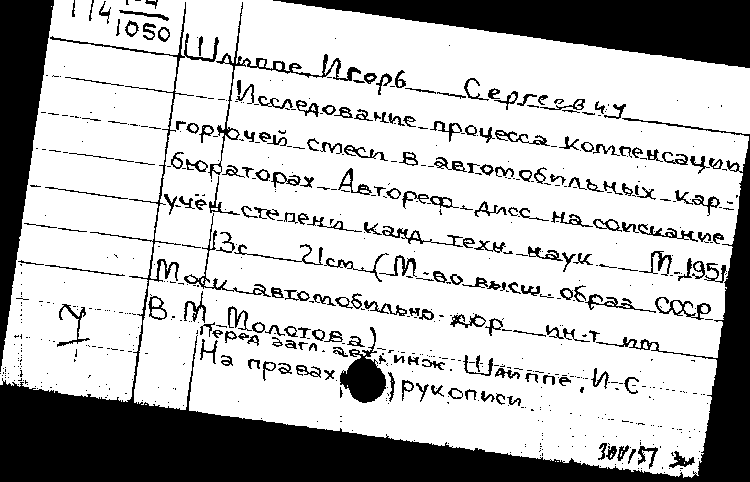 114
1050
Шлиппе Игорь Сергеевич
Исследование процесса компенсации
горючей смеси в автомобильных кар-
бюраторах. Автореф. дисс. на соискание
учён. степени канд. техн. наук. М, 1951
13с 21см. (М-во высш. образ СССР
Моск. автомобильно-дор ин-т им
В. М. Молотова)
Перед загл. авт.: инж. Шлиппе, И. С.
На правах рукописи